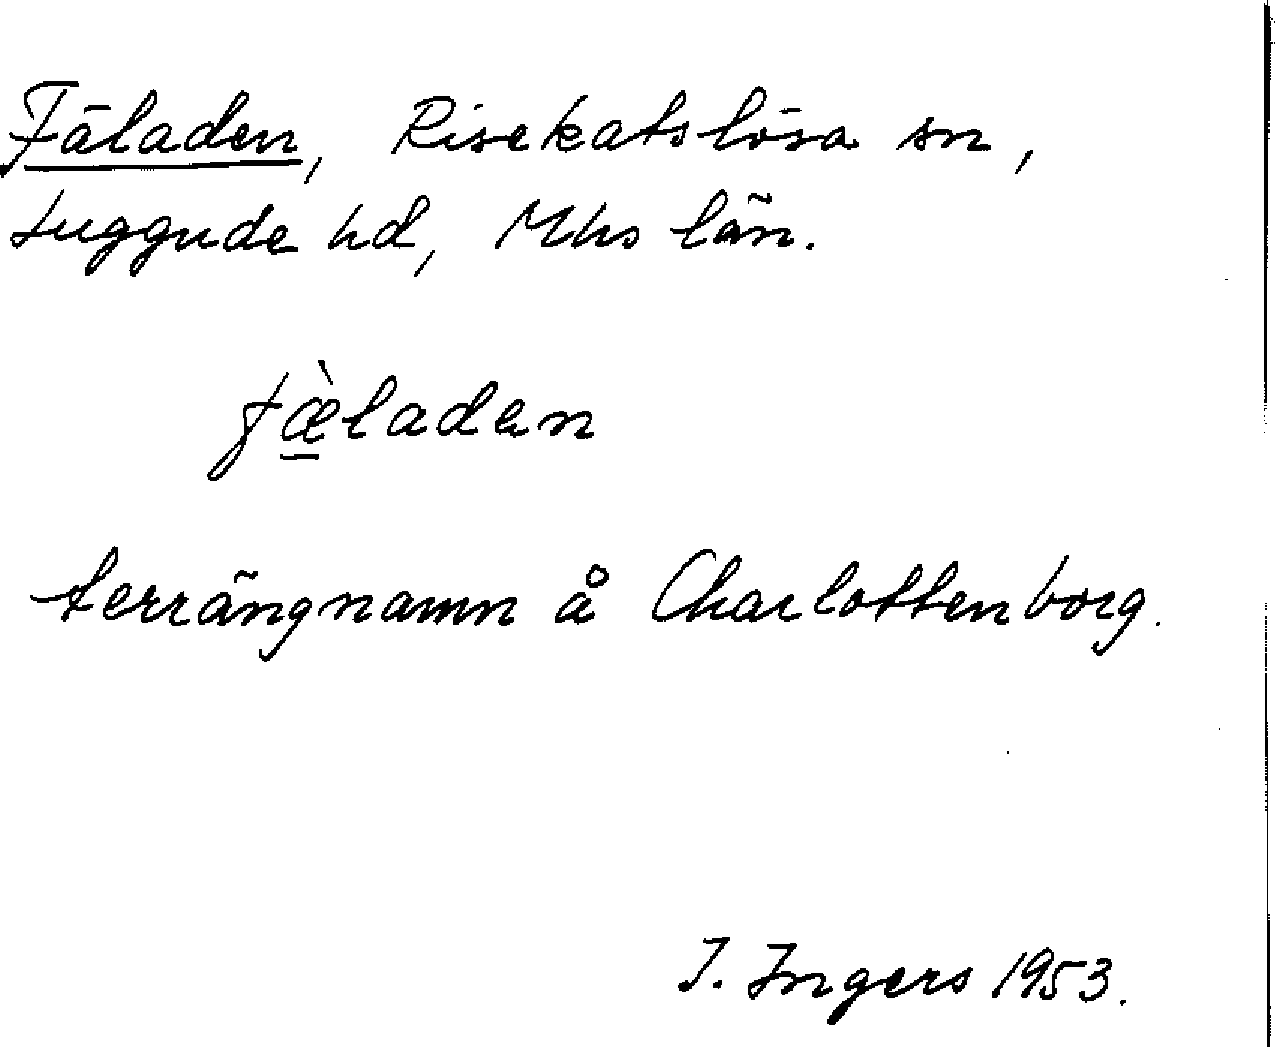 Fäladen, Risekatslösa sn,
Luggude hd, Mhs län.
fæ̀ladan
terrängnamn å Charlottenborg.
I. Ingers 1953.